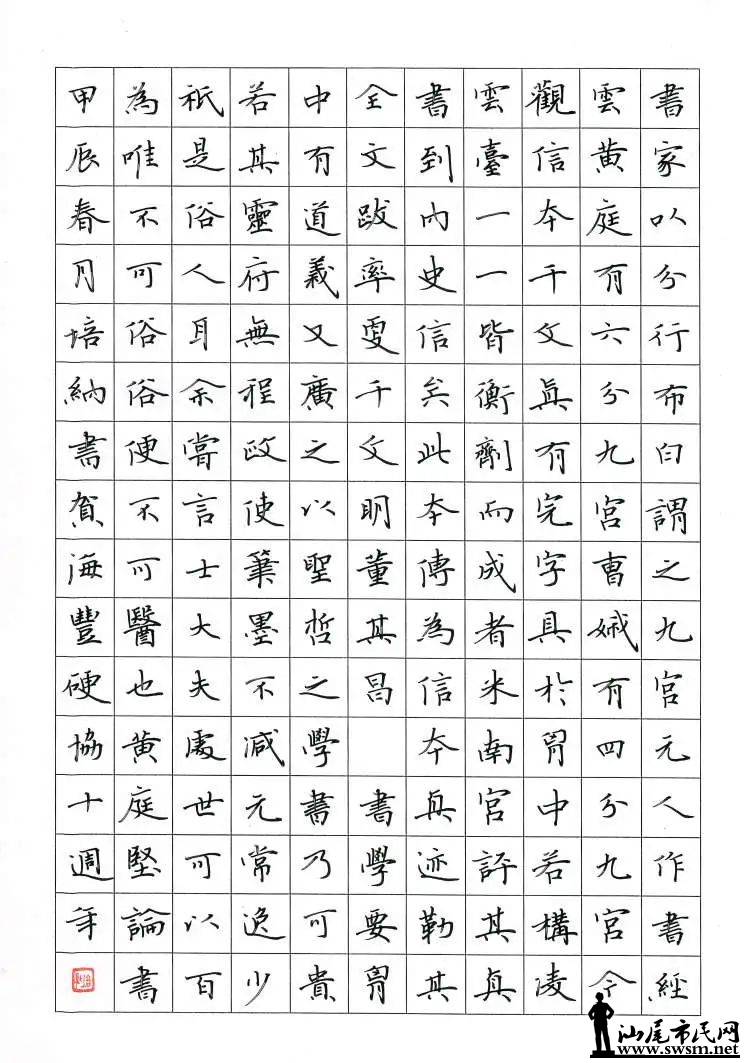 書家以分行布白謂之九宮元人作書經
雲黃庭有六分九宮曹娥有四分九宮今
觀信本千文真有完字具於胷中若構凌
雲臺一一皆衡劑而成者米南宮評其真
書到內史信矣此本傳為信本真迹勒其
全文跋率更千文明董其昌 書學要胷
中有道義又廣之以聖哲之學書乃可貴
若其靈府無程政使筆墨不減元常逸少
衹是俗人耳余嘗言士大夫處世可以百
為唯不可俗俗便不可醫也黃庭堅論書
甲辰春月培納書賀海豐硬協十週年
汕尾市民网
www.swsm.net